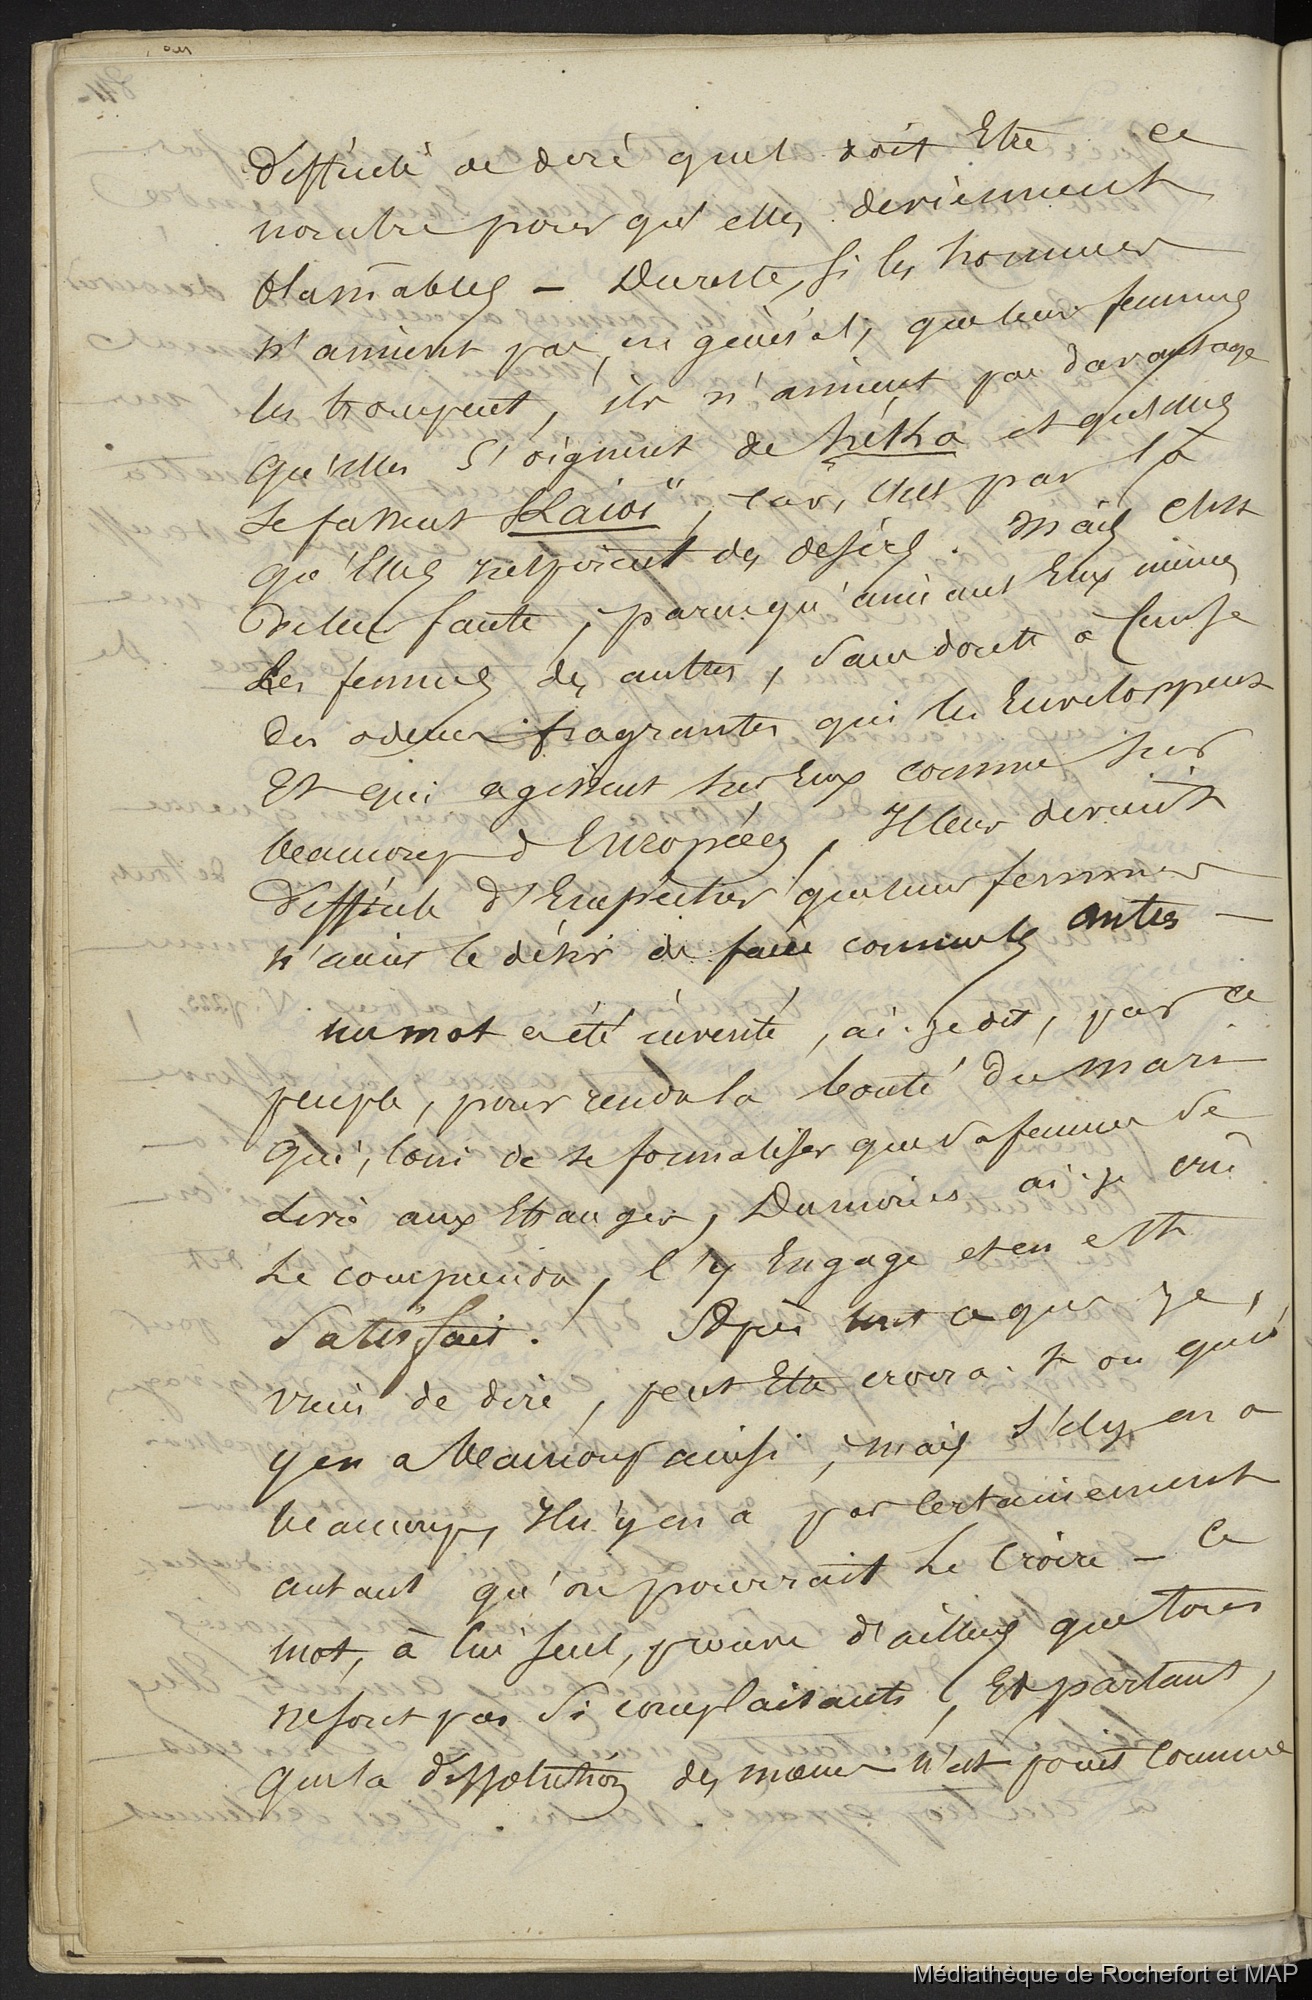 difficile de dire quel doit Etre ce
nombre pour qu'elles deviennent
blamables — Dureste, si les hommes
n'aiment pas, en général, que leurs femmes
les trompent, ils n'aiment pas davantage
qu'elles s'oignent de héKa et qu'elles
se fassent Kaioi", car, c'est par là
qu'Elles inspirent des desirs. Mais c'est
de leur faute, parce qu'aimant Eux mêmes
Les femmes des autres, sans doute à Cause
des odeurs fragrantes qui les Enveloppent
Et qui agissent sur Eux comme sur
beaucoup d'Européens, Il leur devient
difficile d'Empêcher que leurs femmes
n'aient le désir de faire comme les autres —
un mot a été inventé, ai-je dit, par ce
peuple, pour rendre la bonté du mari
qui, loin de se formaliser que sa femme se
livre aux Etranger, Du moins ai-je cru
le comprendre, l'y Engage et en est
satisfait. Après tout ce que je,
viens de dire, peut Etre croira-t-on qu'il
y en a beaucoup ainsi, mais s'il y en a
beaucoup, Il n'y en a pas certainement
autant qu'on pourrait le Croire — Ce
mot, à lui seul, prouve d'ailleurs que tous
ne sont pas si complaisants, Et partant,
que la dissolution des mœurs n'est point comme
Médiathèque de Rochefort et MAP